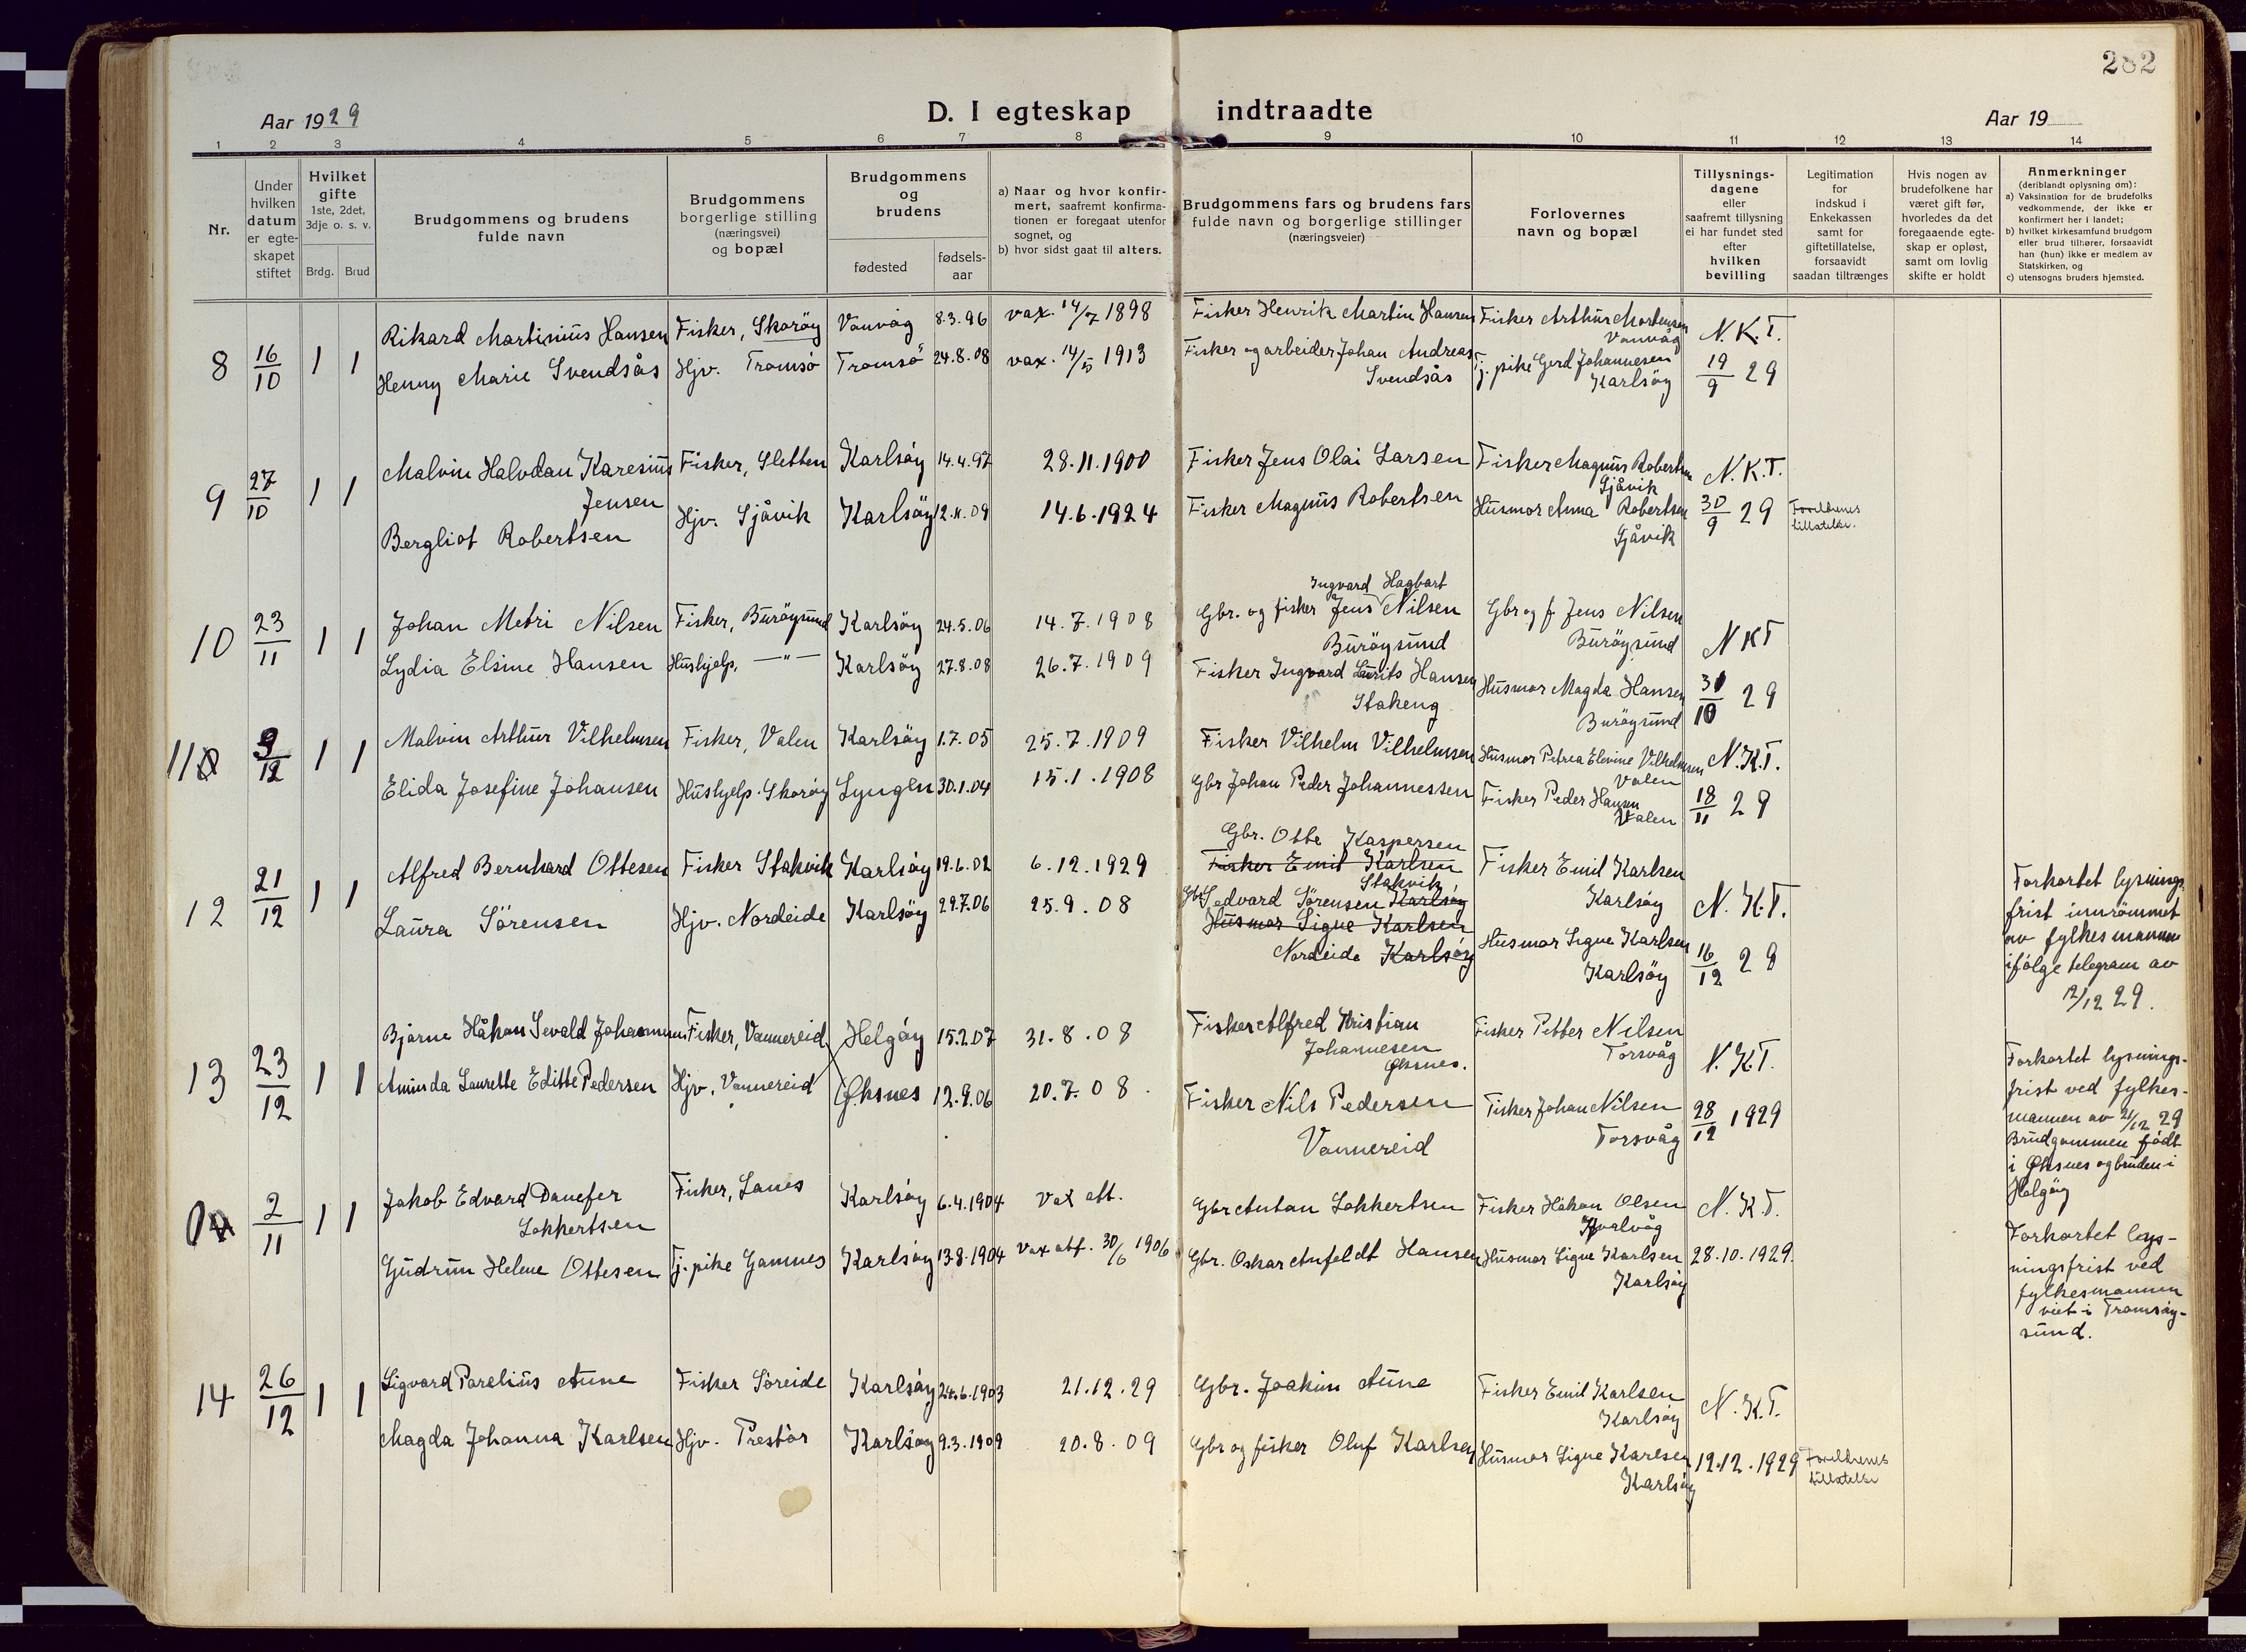 282
Aar 1929
D. I egteskap indtraadte
Aar 19
1 2 3 4 5 6 7 8 9 10 11 12 13 14
Nr.
Under hvilken datum er egte-skapet stiftet
Hvilket gifte
1ste, 2det, 3dje o. s. v.
Brdg. Brud
Brudgommens og brudens fulde navn
Brudgommens borgerlige stilling (næringsvei) og bopæl
Brudgommens og brudens
fødested
fødsels-aar
a) Naar og hvor konfir-mert, saafremt konfirma-tionen er foregaat utenfor sognet, og
b) hvor sidst gaat til alters.
Brudgommens fars og brudens fars fulde navn og borgerlige stillinger (næringsveier)
Forlovernes navn og bopæl
Tillysnings-dagene eller saafremt tillysning ei har fundet sted efter hvilken bevilling
Legitimation for indskud i Enkekassen samt for giftetillatelse, forsaavidt saadan tiltrænges
Hvis nogen av brudefolkene har været gift før, hvorledes da det foregaaende egte-skap er opløst, samt om lovlig skifte er holdt
Anmerkninger
(deriblandt oplysning om):
a) Vaksination for de brudefolks vedkommende, der ikke er konfirmert her i landet;
b) hvilket kirkesamfund brudgom eller brud tilhører, forsaavidt han (hun) ikke er medlem av Statskirken, og
c) utensogns bruders hjemsted.
8 16/10 1 1
Rikard Martinius Hansen Fisker, Skorøy Vanvåg 8.3.96 vax. 14/7 1898 Fisker Henrik Martin Hansen Fisker Arthur Mortensen Vanvåg N.K.T.
Henny Marie Svendsås Hjv. Tromsø Tromsø 24.8.08 vax. 14/5 1913 Fisker og arbeider Johan Andreas Svendsås Tj. pike Gerd Johannesen Karlsöy 19/9 29
9 27/10 1 1
Malvin Halvdan Karesius Jensen Fisker, Sletten Karlsöy 14.4.97 28.11.1900 Fisker Jens Olai Larsen Fisker Magnus Robertsen Sjåvik N.K.T.
Bergliot Robertsen Hjv. Sjåvik Karlsöy 12.x.09 14.6.1924 Fisker Magnus Robertsen Husmor Anna Robertsen Sjåvik 30/9 29 Foreldrenes tillatelse.
10 23/11 1 1
Johan Metri Nilsen Fisker, Burøysund Karlsöy 24.5.06 14.7.1908 Gbr. og fisker Jens Ingvard Hagbart Nilsen Burøysund Gbr og f Jens Nilsen Burøysund N K T
Lydia Elsine Hansen Hushjelp, — " — Karlsöy 27.8.08 26.7.1909 Fisker Ingvard Laurits Hansen Stakeng Husmor Magda Hansen Burøysund 30/10 29
11 9/12 1 1
Malvin Arthur Vilhelmsen Fisker, Valen Karlsöy 1.7.05 25.7.1909 Fisker Vilhelm Vilhelmsen Husmor Petrea Elevine Vilhelmsen Valen N.K.T.
Elida Josefine Johansen Hushjelp. Skorøy Lyngen 30.1.04 15.1.1908 Gbr Johan Peder Johannessen Fisker Peder Hansen Valen 18/11 29
12 21/12 1 1
Alfred Bernhard Ottesen Fisker Stakvik Karlsöy 19.6.02 6.12.1929 Gbr. Otto Kaspersen Fisker Emil Karlsen Stakvik Fisker Emil Karlsen Karlsöy N.K.T.
Laura Sörensen Hjv. Nordeide Karlsöy 29.7.06 25.9.08 Gbr Sedvard Sörensen Karlsöy Husmor Signe Karlsen Nordeide Karlsöy Husmor Signe Karlsen Karlsöy 16/12 29
Forkortet lysnings-
frist innrömmet
av fylkesmannen
ifölge telegram av
12/12 29.
13 23/12 1 1
Bjarne Håkon Sevald Johannesen Fisker, Vannereid Helgöy 15.2.07 31.8.08 Fisker Alfred Kristian Johannesen Øksnes. Fisker Petter Nilsen Torsvåg N.K.T.
Aminda Laurette Editte Pedersen Hjv. Vannereid Øksnes 12.9.06 20.7.08. Fisker Nils Pedersen Vannereid Fisker Johan Nilsen Torsvåg 28/12 1929
Forkortet lysnings-
frist ved fylkes-
mannen av 21/12 29
Brudgommen födt
i Øksnes og bruden i
Helgöy
2/11 1 1
Jakob Edvard Danefer Lokkertsen Fisker, Lanes Karlsöy 6.4.1904 Vax att. Gbr Antan Lokkertsen Fisker Håkon Olsen Kvalvåg N.K.T.
Gudrun Helene Ottesen Tj. pike Gamnes Karlsöy 13.8.1904 Vax att. 30/6 1906 Gbr. Oskar Anfeldt Hansen Husmor Signe Karlsen Karlsöy 28.10.1929.
Forkortet lys-
ningsfrist ved
fylkesmannen
viet i Tromsöy-
sund.
14 26/12 1 1
Sigvard Parelius Aune Fisker Söreide Karlsöy 24.6.1903 21.12.29 Gbr. Joakim Aune Fisker Emil Karlsen Karlsöy N.K.T.
Magda Johanna Karlsen Hjv. Prestbr Karlsöy 9.3.1909 20.8.09 Gbr og fisker Oluf Karlsen Husmor Signe Karlsen Karlsöy 12.12.1929 Foreldrenes tillatelse